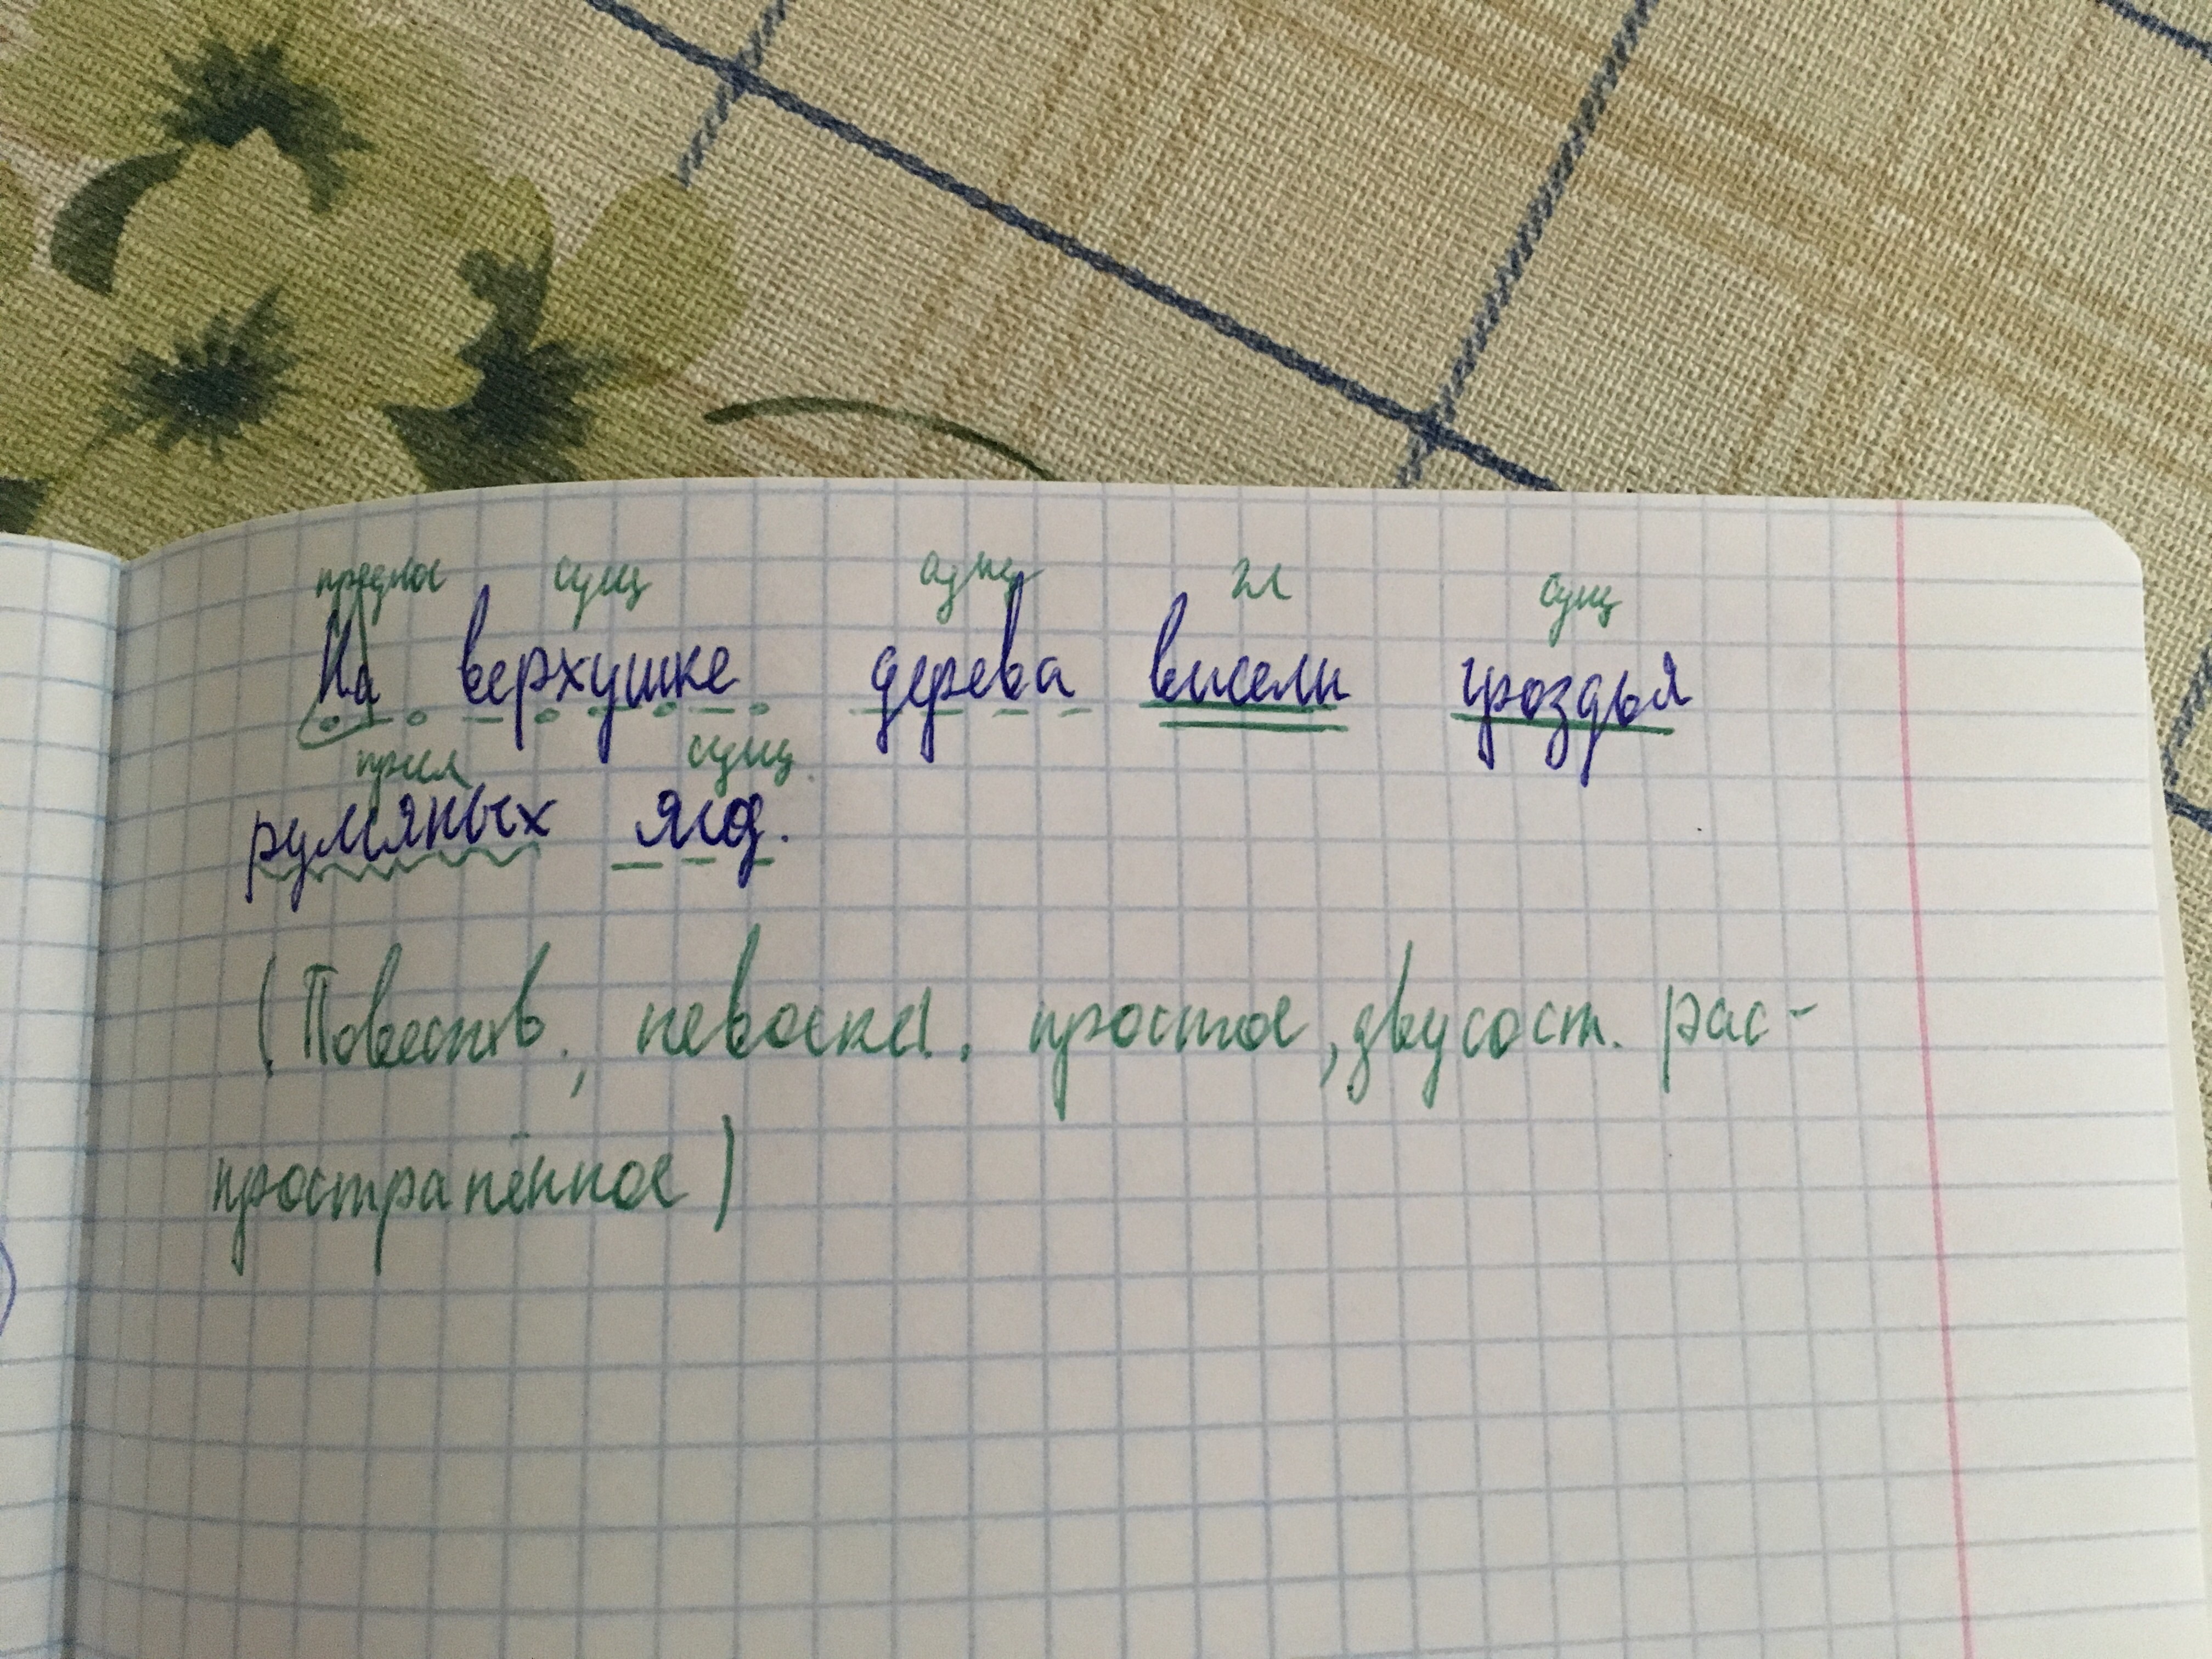 предлог сущ сущ гл сущ
На верхушке дерева висели гроздья
прил сущ.
румяных ягод.
(Повеств., невоскл. простое, двусост. рас-
пространённое)